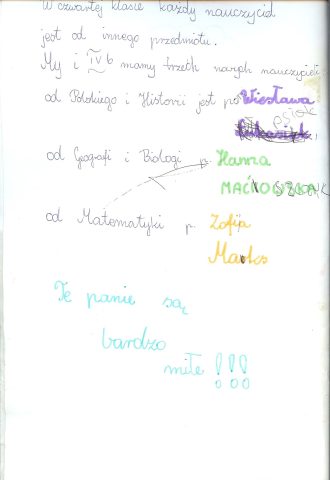 W czwartej klasie każdy nauczyciel
jest od innego przedmiotu.
My i IV b mamy trzech nauczycieli
od Polskiego i Historii jest p. Wiesława
od Geografi i Biologi p. Hanna
od Matematyki p. Zofia
Te panie są
bardzo
miłe !!!